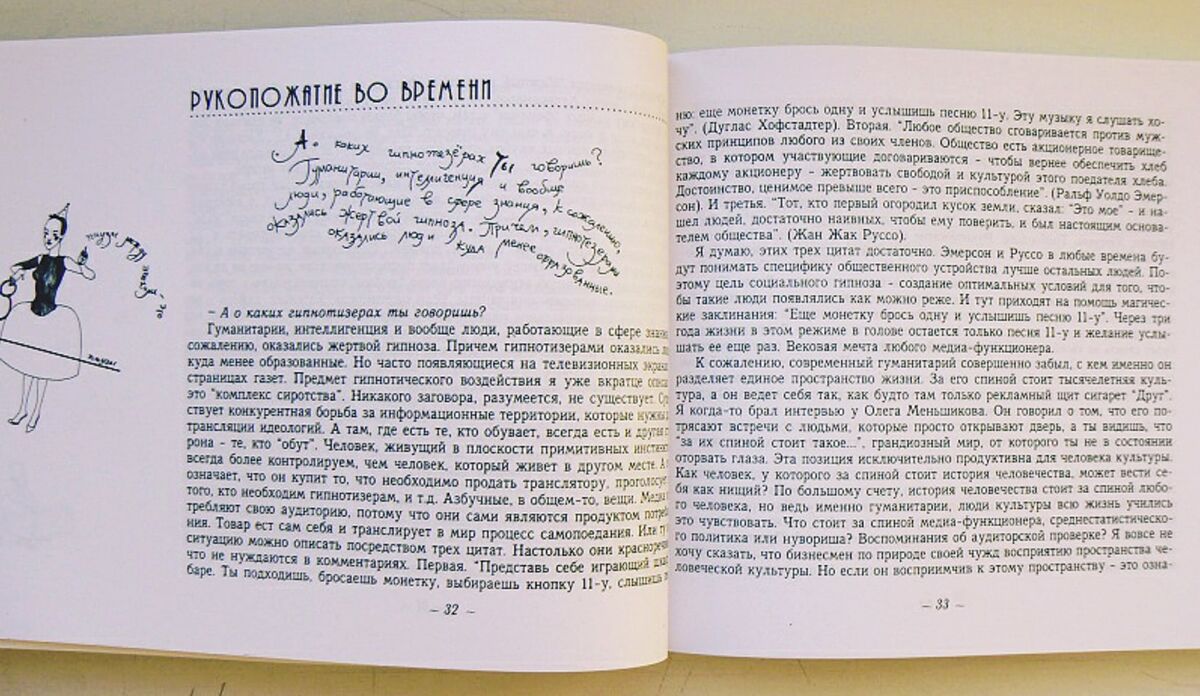 РУКОПОЖАТИЕ ВО ВРЕМЕНИ
А о каких гипнотезёрах ты говоришь?
Гуманитарии, интеллигенция и вообще
люди, работающие в сфере знания, к сожалению,
оказались жертвой гипноза. Причем, гипнотезерами
оказались люди куда менее образованные.
– А о каких гипнотизерах ты говоришь?
Гуманитарии, интеллигенция и вообще люди, работающие в сфере
сожалению, оказались жертвой гипноза. Причем гипнотизерами оказались
куда менее образованные. Но часто появляющиеся на телевизионных
страницах газет. Предмет гипнотического воздействия я уже вкратце
это "комплекс сиротства". Никакого заговора, разумеется, не существует.
ствует конкурентная борьба за информационные территории, которые
трансляции идеологий. А там, где есть те, кто обувает, всегда есть и другая
рона - те, кто "обут". Человек, живущий в плоскости примитивных
всегда более контролируем, чем человек, который живет в другом месте.
означает, что он купит то, что необходимо продать транслятору,
того, кто необходим гипнотизерам, и т.д. Азбучные, в общем-то, вещи.
требляют свою аудиторию, потому что они сами являются продуктом
ния. Товар ест сам себя и транслирует в мир процесс самопоедания. Или
ситуацию можно описать посредством трех цитат. Настолько они
что не нуждаются в комментариях. Первая. "Представь себе играющий
баре. Ты подходишь, бросаешь монетку, выбираешь кнопку 11-у, слышишь
– 32 –
ню: еще монетку брось одну и услышишь песню 11-у. Эту музыку я слушать хо-
чу". (Дуглас Хофстадтер). Вторая. "Любое общество сговаривается против муж-
ских принципов любого из своих членов. Общество есть акционерное товарище-
ство, в котором участвующие договариваются - чтобы вернее обеспечить хлеб
каждому акционеру - жертвовать свободой и культурой этого поедателя хлеба.
Достоинство, ценимое превыше всего - это приспособление". (Ральф Уолдо Эмер-
сон). И третья. "Тот, кто первый огородил кусок земли, сказал: "Это мое" - и на-
шел людей, достаточно наивных, чтобы ему поверить, и был настоящим основа-
телем общества". (Жан Жак Руссо).
Я думаю, этих трех цитат достаточно. Эмерсон и Руссо в любые времена бу-
дут понимать специфику общественного устройства лучше остальных людей. По-
этому цель социального гипноза - создание оптимальных условий для того, что-
бы такие люди появлялись как можно реже. И тут приходят на помощь магичес-
кие заклинания: "Еще монетку брось одну и услышишь песню 11-у". Через три
года жизни в этом режиме в голове остается только песня 11-у и желание услы-
шать ее еще раз. Вековая мечта любого медиа-функционера.
К сожалению, современный гуманитарий совершенно забыл, с кем именно он
разделяет единое пространство жизни. За его спиной стоит тысячелетняя куль-
тура, а он ведет себя так, как будто там только рекламный щит сигарет "Друг".
Я когда-то брал интервью у Олега Меньшикова. Он говорил о том, что его по-
трясают встречи с людьми, которые просто открывают дверь, а ты видишь, что
"за их спиной стоит такое...", грандиозный мир, от которого ты не в состоянии
оторвать глаза. Эта позиция исключительно продуктивна для человека культуры.
Как человек, у которого за спиной стоит история человечества, может вести се-
бя как нищий? По большому счету, история человечества стоит за спиной любо-
го человека, но ведь именно гуманитарии, люди культуры всю жизнь учились
это чувствовать. Что стоит за спиной медиа-функционера, среднестатистическо-
го политика или нувориша? Воспоминания об аудиторской проверке? Я вовсе не
хочу сказать, что бизнесмен по природе своей чужд восприятию пространства че-
ловеческой культуры. Но если он восприимчив к этому пространству - это озна-
– 33 –